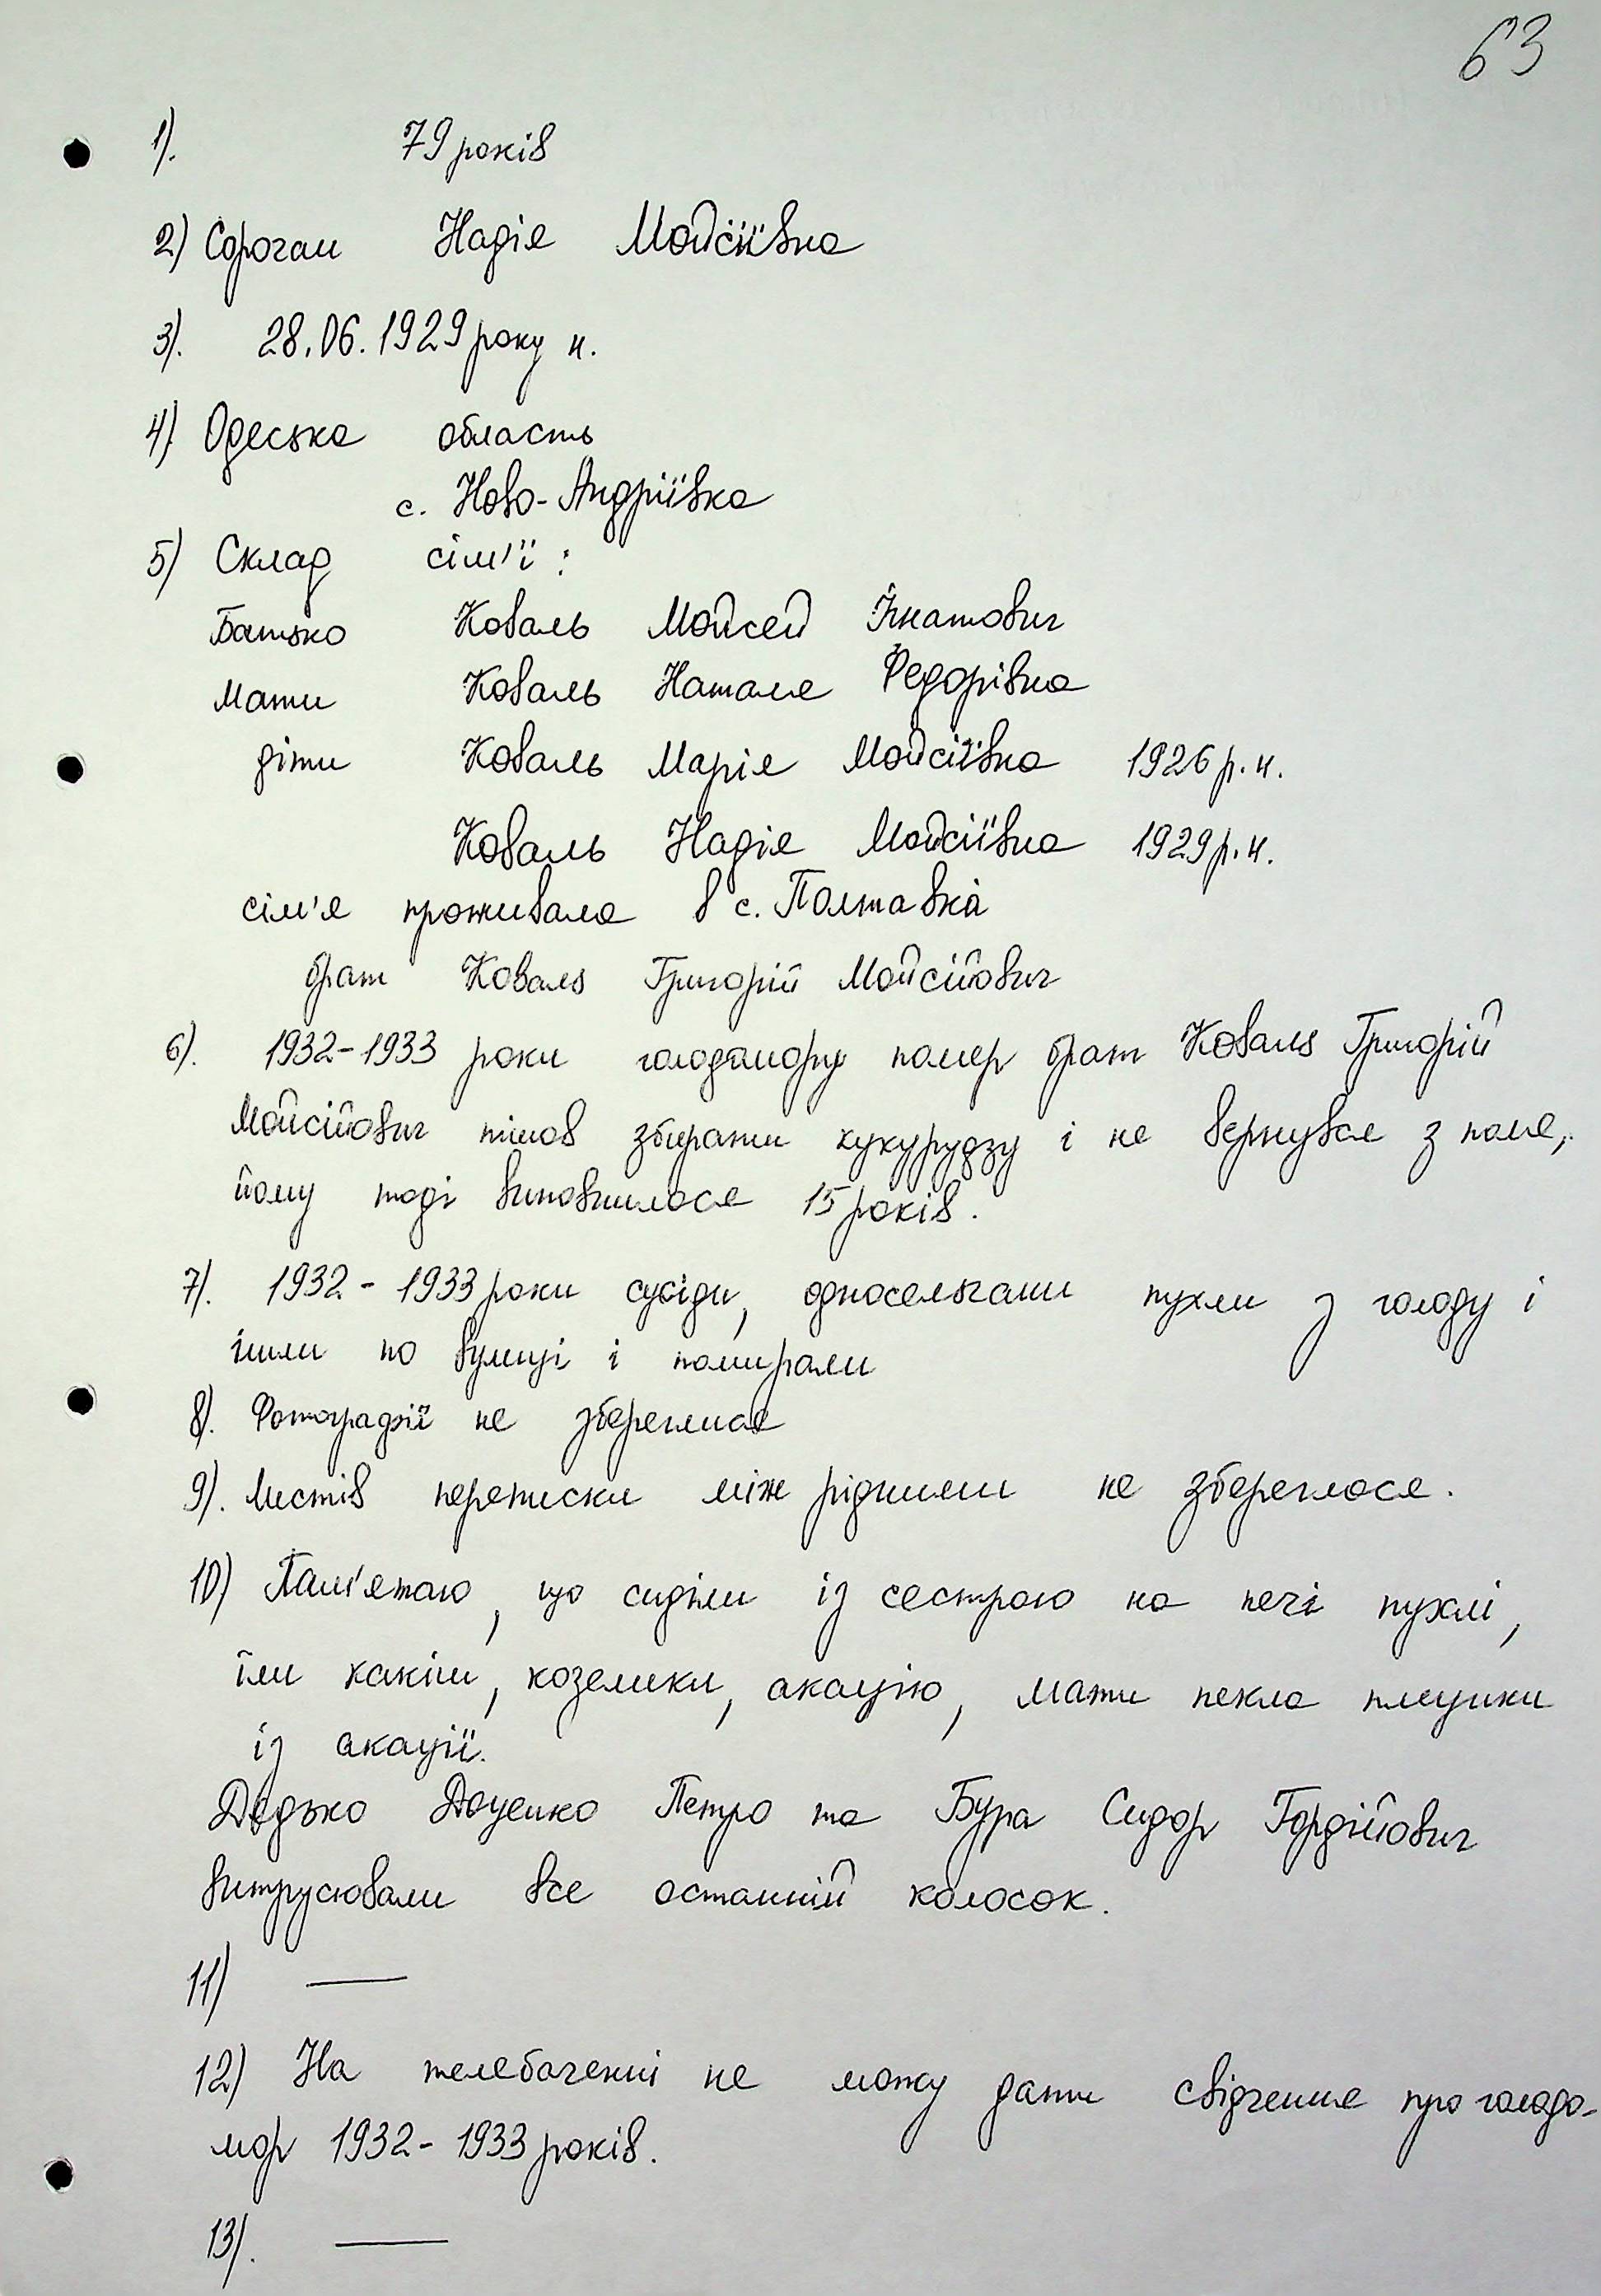 63
1). 79 років
2) Сорочан Надія Мойсіївна
3). 28.06.1929 року н.
4) Одеська область
с. Ново-Андріївка
5) Склад сім'ї:
Батько Коваль Мойсей Ігнатович
Мати Коваль Наталя Федорівна
діти Коваль Марія Мойсіївна 1926 р.н.
Коваль Надія Мойсіївна 1929 р.н.
сім'я проживала в с. Полтавка
брат Коваль Григорій Мойсійович
6). 1932-1933 роки голодомору помер брат Коваль Григорій
Мойсійович пішов збирати кукурудзу і не вернувся з поля,
йому тоді виповнилося 15 років.
7). 1932-1933 роки сусіди, односельчани пухли з голоду і
йшли по вулиці і помирали
8). Фотографії не збереглися
9). Листів переписки між рідними не збереглося.
10) Пам'ятаю, що сиділи із сестрою на печі пухлі,
їли какіш, козелики, акацію, мати пекла плецики
із акації.
Дядько Доценко Петро та Бура Сидор Гордійович
витрусювали все останній колосок.
11) —
12) На телебаченні не можу дати свідчення про голодо-
мор 1932-1933 років.
13). —